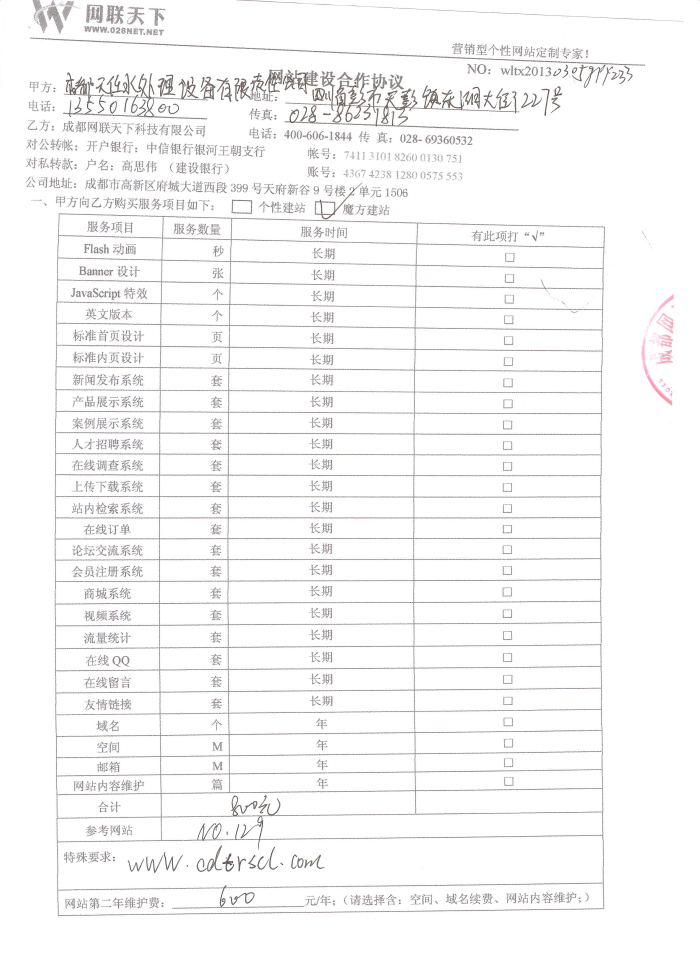 网联天下
WWW.028NET.NET
营销型个性网站定制专家!
网站建设合作协议
NO: wltx2013
甲方: 水处理设备有限责任公司 地址: 四川省彭州市天彭镇 大街227号
电话: 13550163800 传真: 028-86237815
乙方: 成都网联天下科技有限公司 电话: 400-606-1844 传 真: 028- 69360532
对公转帐: 开户银行: 中信银行银河王朝支行 帐号: 7411 3101 8260 0130 751
对私转款: 户名: 高思伟 (建设银行) 账号: 4367 4238 1280 0575 553
公司地址: 成都市高新区府城大道西段 399 号天府新谷 9 号楼 2 单元 1506
一、甲方向乙方购买服务项目如下: □ 个性建站 ☑ 魔方建站
服务项目 服务数量 服务时间 有此项打“√”
Flash 动画 秒 长期 □
Banner 设计 张 长期 □
JavaScript 特效 个 长期 □
英文版本 个 长期 □
标准首页设计 页 长期 □
标准内页设计 页 长期 □
新闻发布系统 套 长期 □
产品展示系统 套 长期 □
案例展示系统 套 长期 □
人才招聘系统 套 长期 □
在线调查系统 套 长期 □
上传下载系统 套 长期 □
站内检索系统 套 长期 □
在线订单 套 长期 □
论坛交流系统 套 长期 □
会员注册系统 套 长期 □
商城系统 套 长期 □
视频系统 套 长期 □
流量统计 套 长期 □
在线 QQ 套 长期 □
在线留言 套 长期 □
友情链接 套 长期 □
域名 个 年 □
空间 M 年 □
邮箱 M 年 □
网站内容维护 篇 年 □
合计 800元
参考网站 NO.129
特殊要求: www.cdtrscl.com
网站第二年维护费: 600 元/年; (请选择含: 空间、域名续费、网站内容维护;)